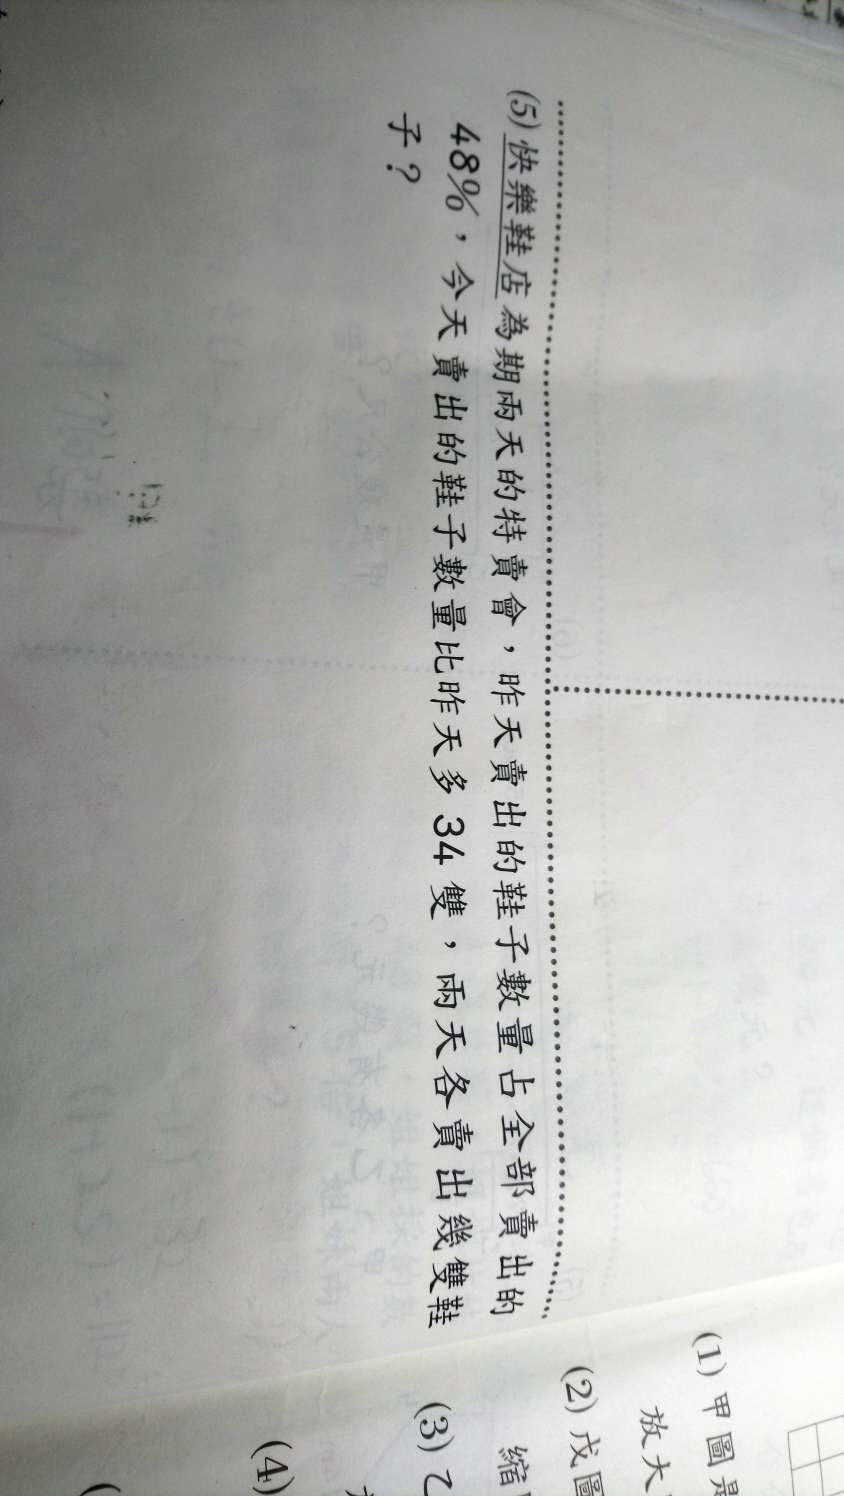 (5)快樂鞋店為期兩天的特賣會，昨天賣出的鞋子數量占全部賣出的
48%，今天賣出的鞋子數量比昨天多34雙，兩天各賣出幾雙鞋
子？
(1)甲圖是
放大
(2)戊圖
縮
(3)乙
(4)